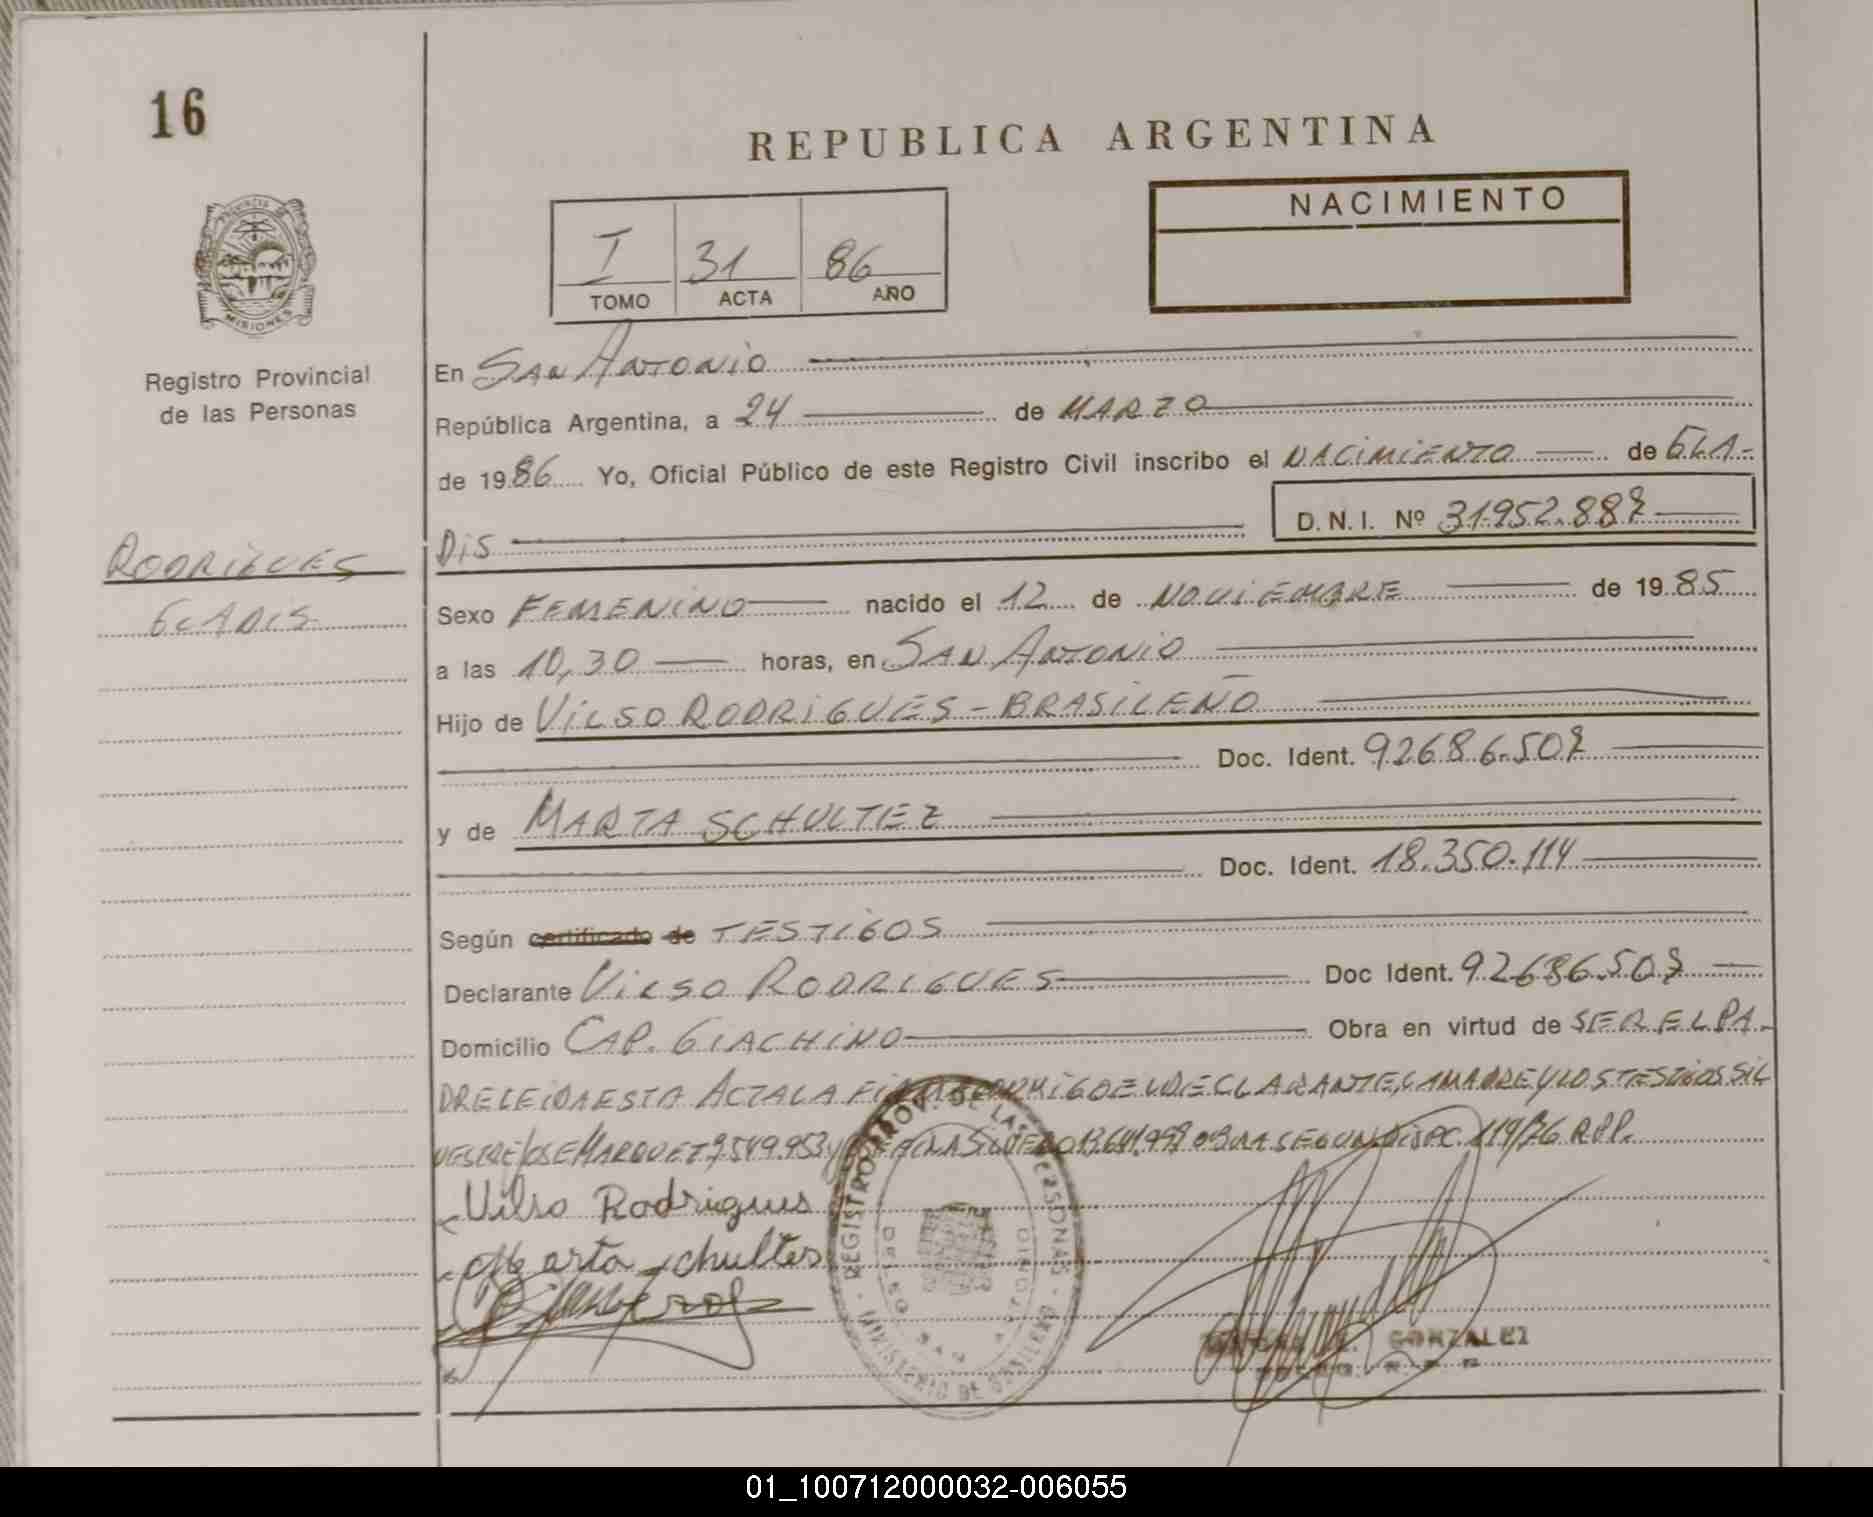 16
REPUBLICA ARGENTINA
NACIMIENTO
I 31 86
TOMO ACTA AÑO
PROVINCIA DE MISIONES
Registro Provincial
de las Personas
RODRIGUES
GLADIS
En SAN ANTONIO
República Argentina, a 24 de MARZO
de 1986 Yo, Oficial Público de este Registro Civil inscribo el NACIMIENTO de GLA-
DIS D.N.I. Nº 31.952.887
Sexo FEMENINO nacido el 12 de NOVIEMBRE de 1985
a las 10,30 horas, en SAN ANTONIO
Hijo de VILSO RODRIGUES - BRASILEÑO
Doc. Ident. 92686.507
y de MARTA SCHULTEZ
Doc. Ident. 18.350.114
Según certificado de TESTIGOS
Declarante VILSO RODRIGUES Doc Ident. 92686.507
Domicilio CAP. GIACHINO Obra en virtud de SER EL PA-
DRE LEIDA ESTA ACTA LA FIRMA CONMIGO EL DECLARANTE, LA MADRE Y LOS TESTIGOS SIL
VESTRE JOSE MARQUEZ 7.549.953 Y OBRA SEGUN DISPC. 119/76 R.P.P.
Vilso Rodrigues
Marta schultes
REGISTRO PROV. DE LAS PERSONAS
MINISTERIO DE GOBIERNO
SAN ANTONIO
GONZALEZ
01_100712000032-006055